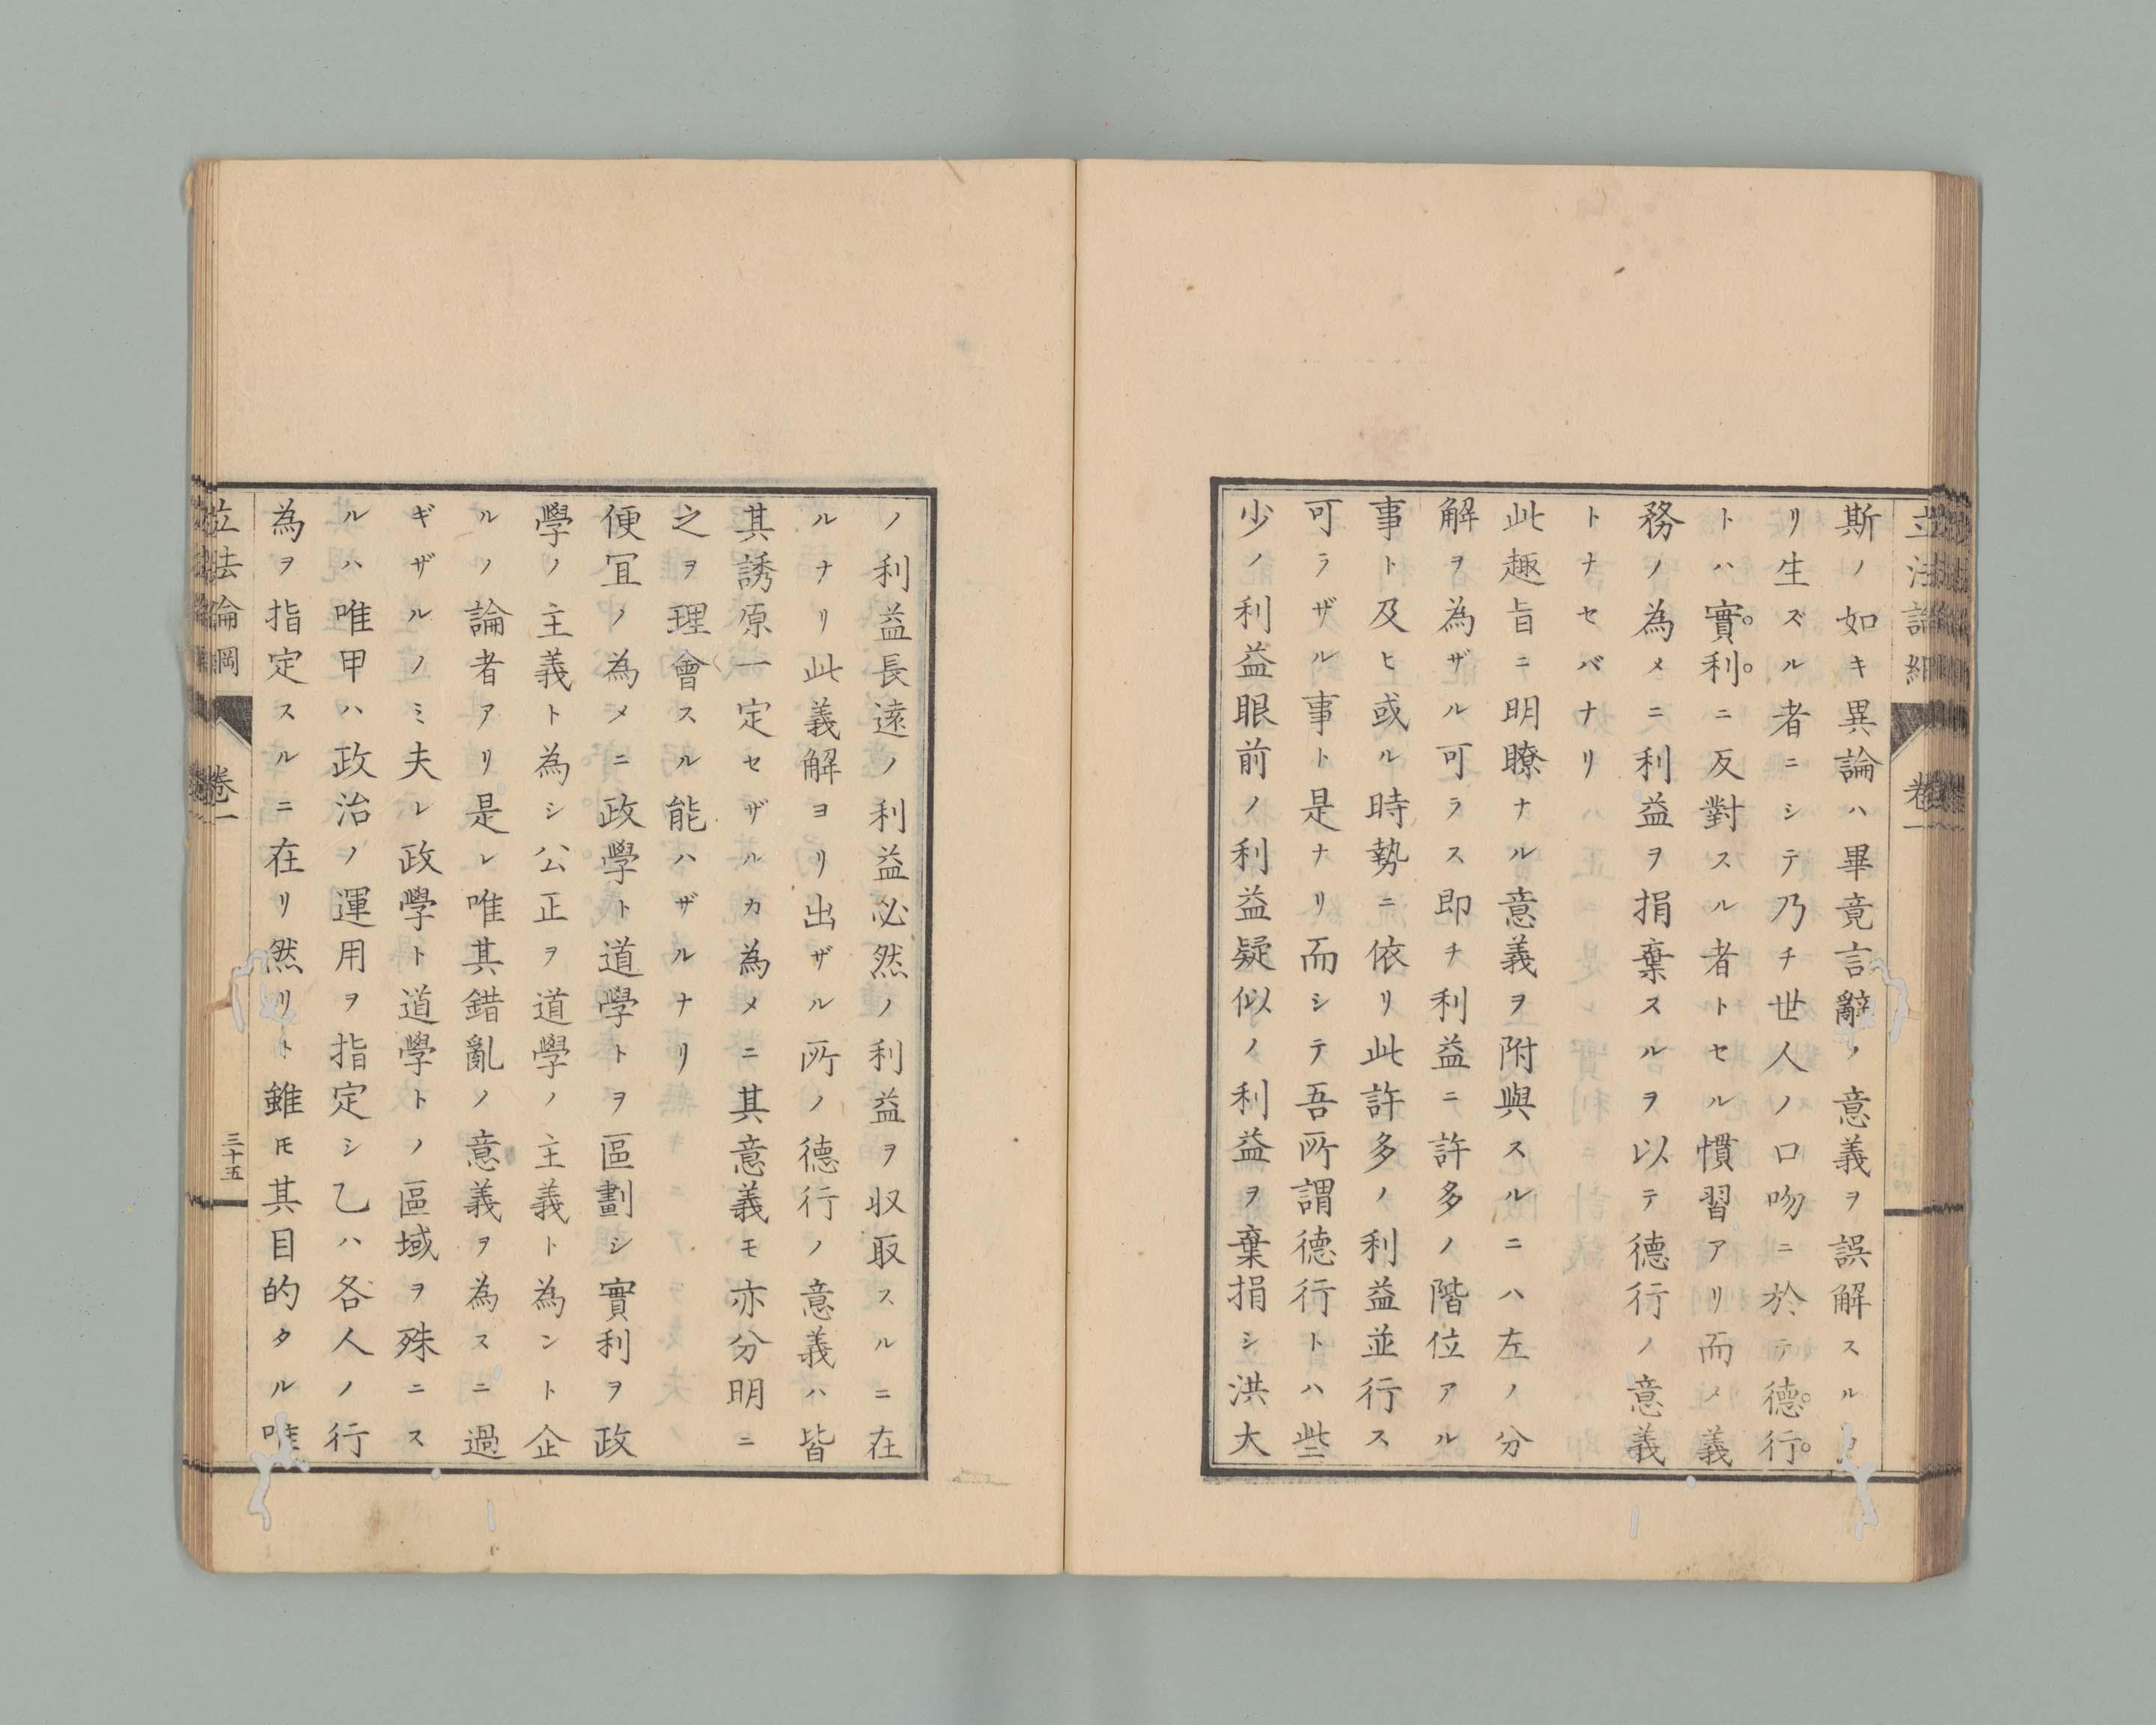 斯ノ如キ異論ハ畢竟言辭ノ意義ヲ誤解スル
リ生ズル者ニシテ乃チ世人ノ口吻ニ於テ德行
トハ實利ニ反對スル者トセル慣習アリ而メ義
務ノ為メニ利益ヲ捐棄スルヲ以テ德行ノ意義
トナセバナリ
此趣旨ニ明瞭ナル意義ヲ附與スルニハ左ノ分
解ヲ為ザル可ラス即チ利益ニ許多ノ階位アル
事ト及ヒ或ル時勢ニ依リ此許多ノ利益並行ス
可ラザル事ト是ナリ而シテ吾所謂德行トハ些
少ノ利益眼前ノ利益疑似ノ利益ヲ棄捐シ洪大
ノ利益長遠ノ利益必然ノ利益ヲ収取スルニ在
ルナリ此義解ヨリ出ザル所ノ德行ノ意義ハ皆
其誘原一定セザルカ為メニ其意義モ亦分明ニ
之ヲ理會スル能ハザルナリ
便宜ノ為メニ政學ト道學トヲ區劃シ實利ヲ政
學ノ主義ト為シ公正ヲ道學ノ主義ト為ント企
ルノ論者アリ是レ唯其錯亂ノ意義ヲ為スニ過
ギザルノミ夫レ政學ト道學トノ區域ヲ殊ニス
ルハ唯甲ハ政治ノ運用ヲ指定シ乙ハ各人ノ行
為ヲ指定スルニ在リ然リト雖𪜈其目的タル唯
立法論綱
卷一
三十五